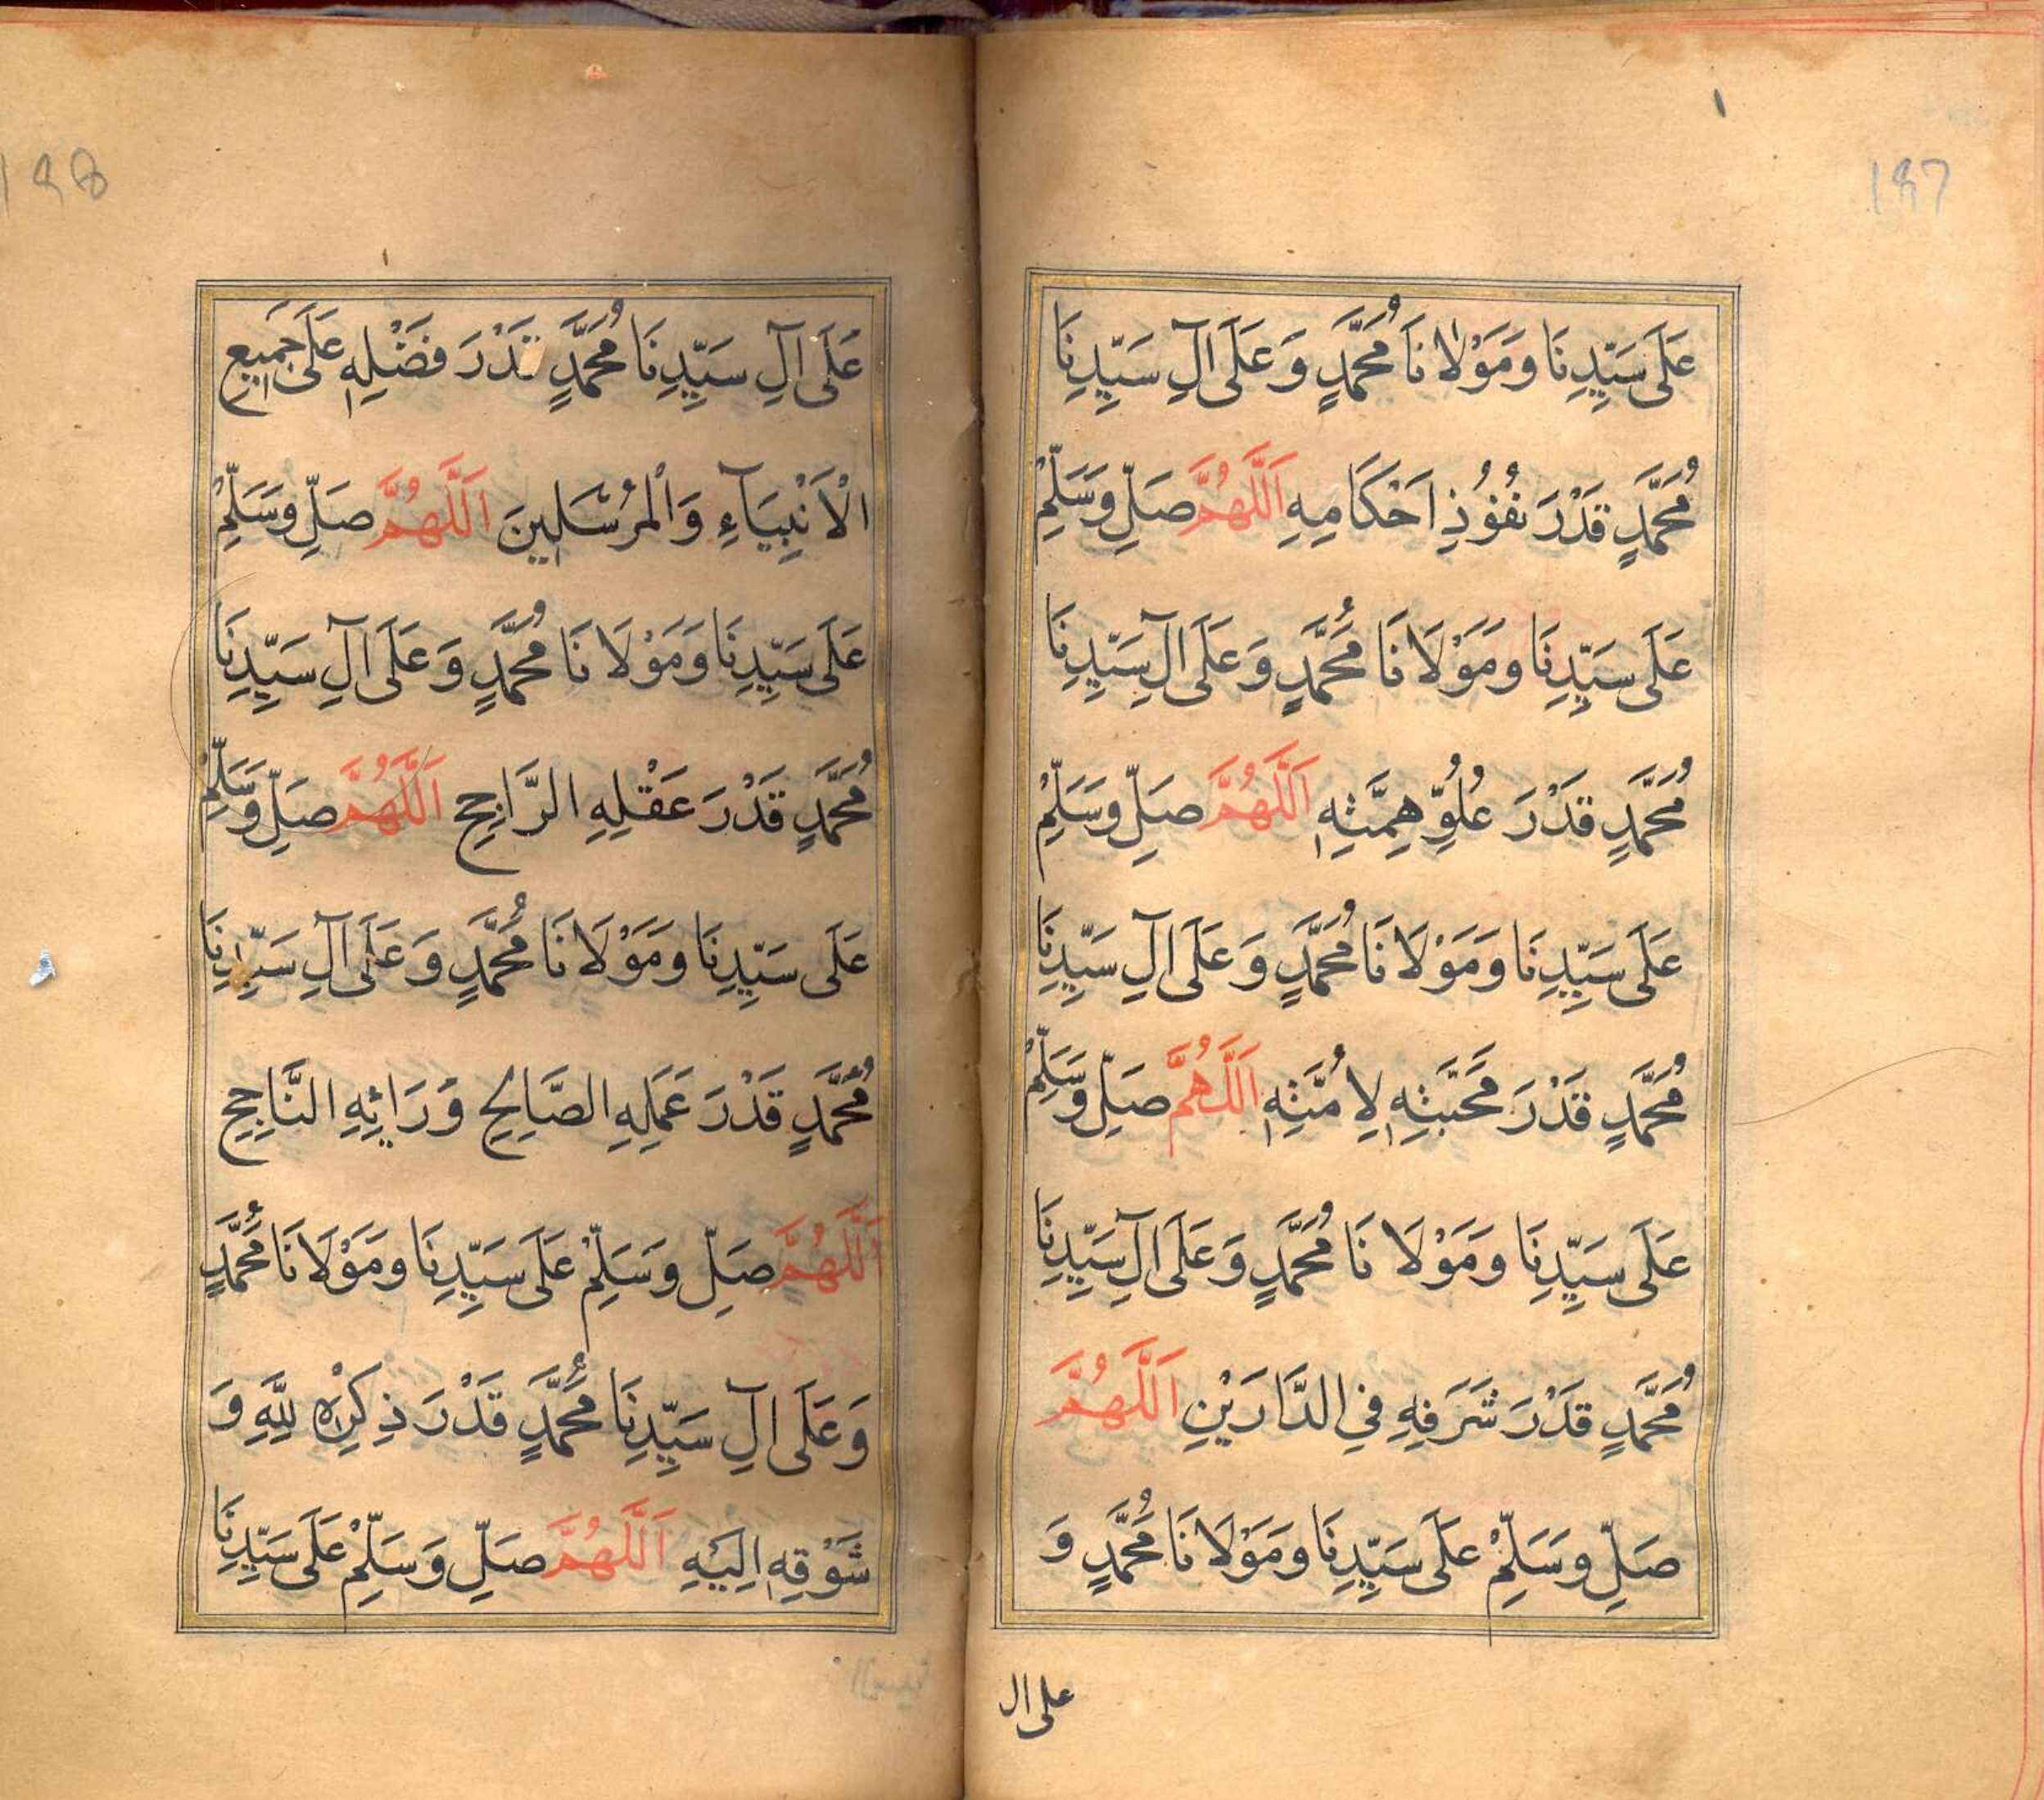 197
عَلَى سَيِّدِنَا وَمَوْلَانَا مُحَمَّدٍ وَعَلَى آلِ سَيِّدِنَا
مُحَمَّدٍ قَدْرَ نُفُوُذِ اَحْكَامِهِ اَللَّهُمَّ صَلِّ وَسَلِّمْ
عَلَى سَيِّدِنَا وَمَوْلَانَا مُحَمَّدٍ وَعَلَى آلِ سَيِّدِنَا
مُحَمَّدٍ قَدْرَ عُلُوِّ هِمَّتِهٖ اَللَّهُمَّ صَلِّ وَسَلِّمْ
عَلَى سَيِّدِنَا وَمَوْلَانَا مُحَمَّدٍ وَعَلَى آلِ سَيِّدِنَا
مُحَمَّدٍ قَدْرَ مَحَبَّتِهٖ لِاُمَّتِهٖ اَللَّهُمَّ صَلِّ وَسَلِّمْ
عَلَى سَيِّدِنَا وَمَوْلَانَا مُحَمَّدٍ وَعَلَى آلِ سَيِّدِنَا
مُحَمَّدٍ قَدْرَ شَرَفِهِ فِي الدَّارَيْنِ اَللَّهُمَّ
صَلِّ وَسَلِّمْ عَلَى سَيِّدِنَا وَمَوْلَانَا مُحَمَّدٍ وَ
على ال
198
عَلَى آلِ سَيِّدِنَا مُحَمَّدٍ قَدْرَ فَضْلِهٖ عَلَى جَمِيعِ
الْاَنْبِيَآءِ وَالْمُرْسَلِينَ اَللَّهُمَّ صَلِّ وَسَلِّمْ
عَلَى سَيِّدِنَا وَمَوْلَانَا مُحَمَّدٍ وَعَلَى آلِ سَيِّدِنَا
مُحَمَّدٍ قَدْرَ عَقْلِهِ الرَّاجِحِ اَللَّهُمَّ صَلِّ وَسَلِّمْ
عَلَى سَيِّدِنَا وَمَوْلَانَا مُحَمَّدٍ وَعَلَى آلِ سَيِّدِنَا
مُحَمَّدٍ قَدْرَ عَمَلِهِ الصَّالِحِ وَرَائِهِ النَّاجِحِ
اَللَّهُمَّ صَلِّ وَسَلِّمْ عَلَى سَيِّدِنَا وَمَوْلَانَا مُحَمَّدٍ
وَعَلَى آلِ سَيِّدِنَا مُحَمَّدٍ قَدْرَ ذِكْرِهٖ لِلَّهِ وَ
شَوْقِهٖ اِلَيْهِ اَللَّهُمَّ صَلِّ وَسَلِّمْ عَلَى سَيِّدِنَا